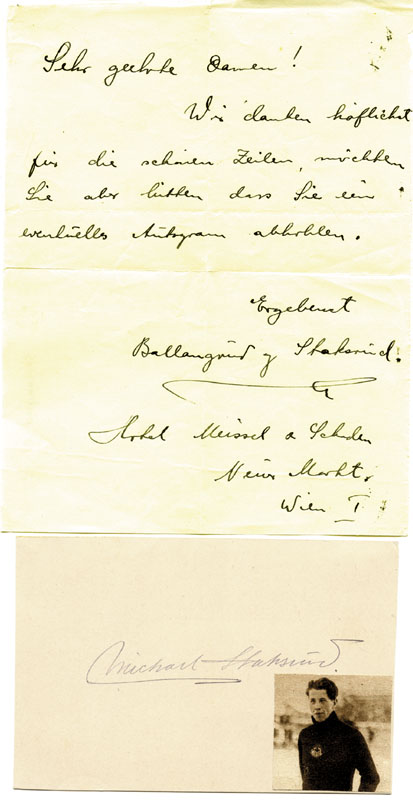 Sehr geehrte Damen!
Wir danken höflichst
für die schönen Zeilen, möchten
Sie aber bitten dass Sie ein
eventuelles Autogram abhohlen.
Ergebenst
Ballangrud og Staksrud.
Hotel Meissel & Schaden
Neuer Markt.
Wien I
Michael Staksrud.